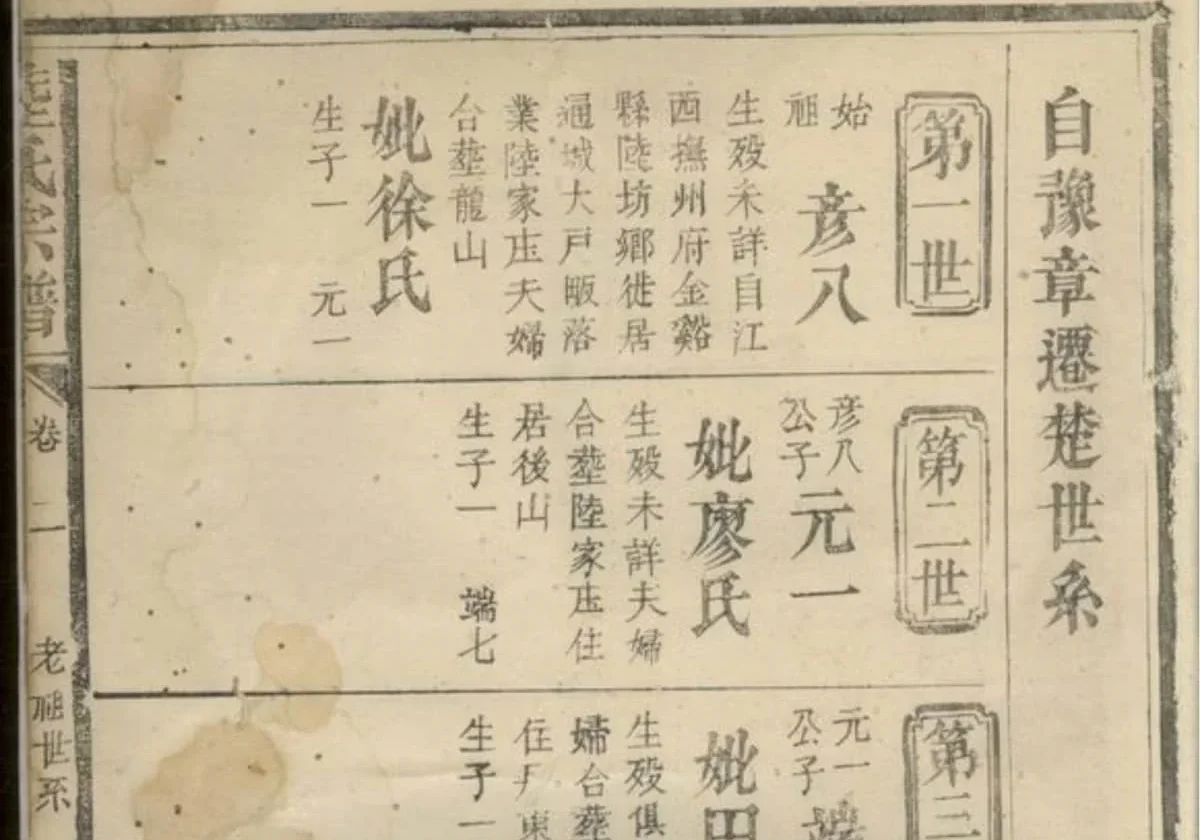 自豫章遷楚世系
第一世
始祖
彦八
生殁未詳自江
西撫州府金谿
縣陸坊鄉徙居
通城大戸畈落
業陸家庄夫婦
合塟龍山
妣徐氏
生子一 元一
第二世
彦八公子
元一
妣廖氏
生殁未詳夫婦
合塟陸家庄住
居後山
生子一 端七
第三
元一公子
端
妣田
生殁俱
婦合塟
住
生子一
氏宗譜
卷二
老祖世系